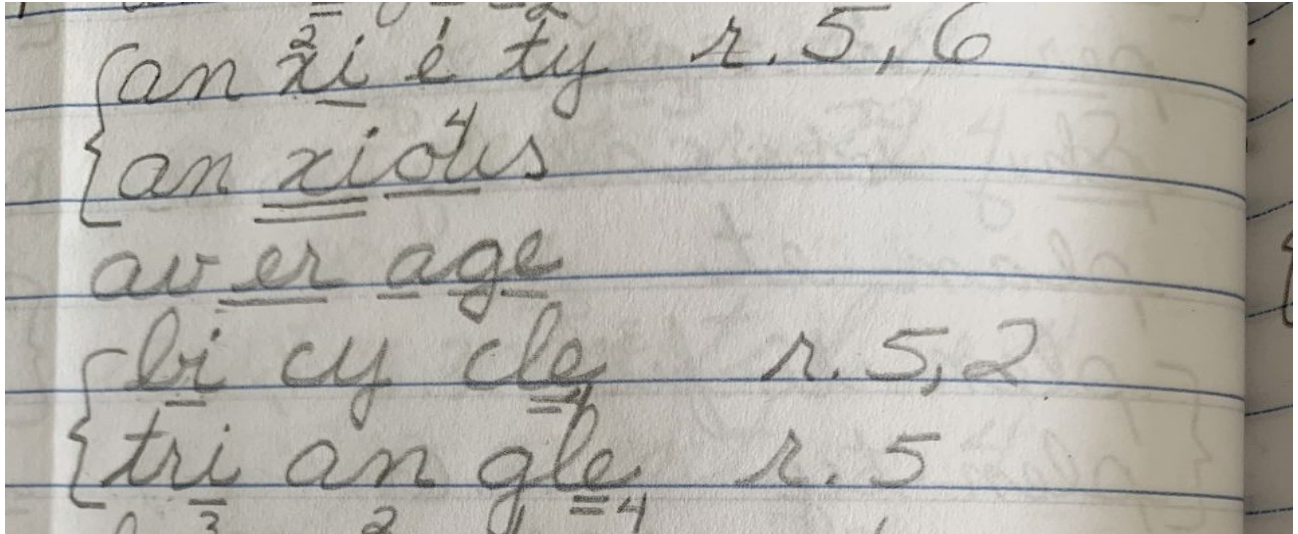 an xi e ty r. 5, 6
an xious
av er age
bi cy cle r. 5, 2
tri an gle r. 5